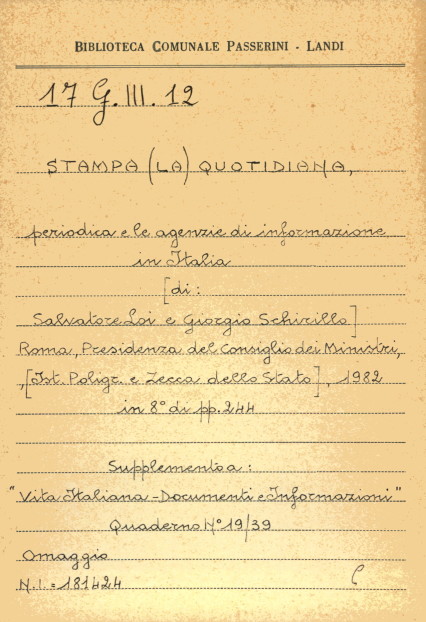 BIBLIOTECA COMUNALE PASSERINI - LANDI
17 G. III. 12
STAMPA (LA) QUOTIDIANA,
periodica e le agenzie di informazione
in Italia
[di:
Salvatore Loi e Giorgio Schirillo]
Roma, Presidenza del Consiglio dei Ministri,
,[Ist. Poligr. e Zecca dello Stato], 1982
in 8° di pp. 244
Supplemento a:
"Vita Italiana - Documenti e Informazioni"
Quaderno N° 19/39
Omaggio
N.I. = 181424